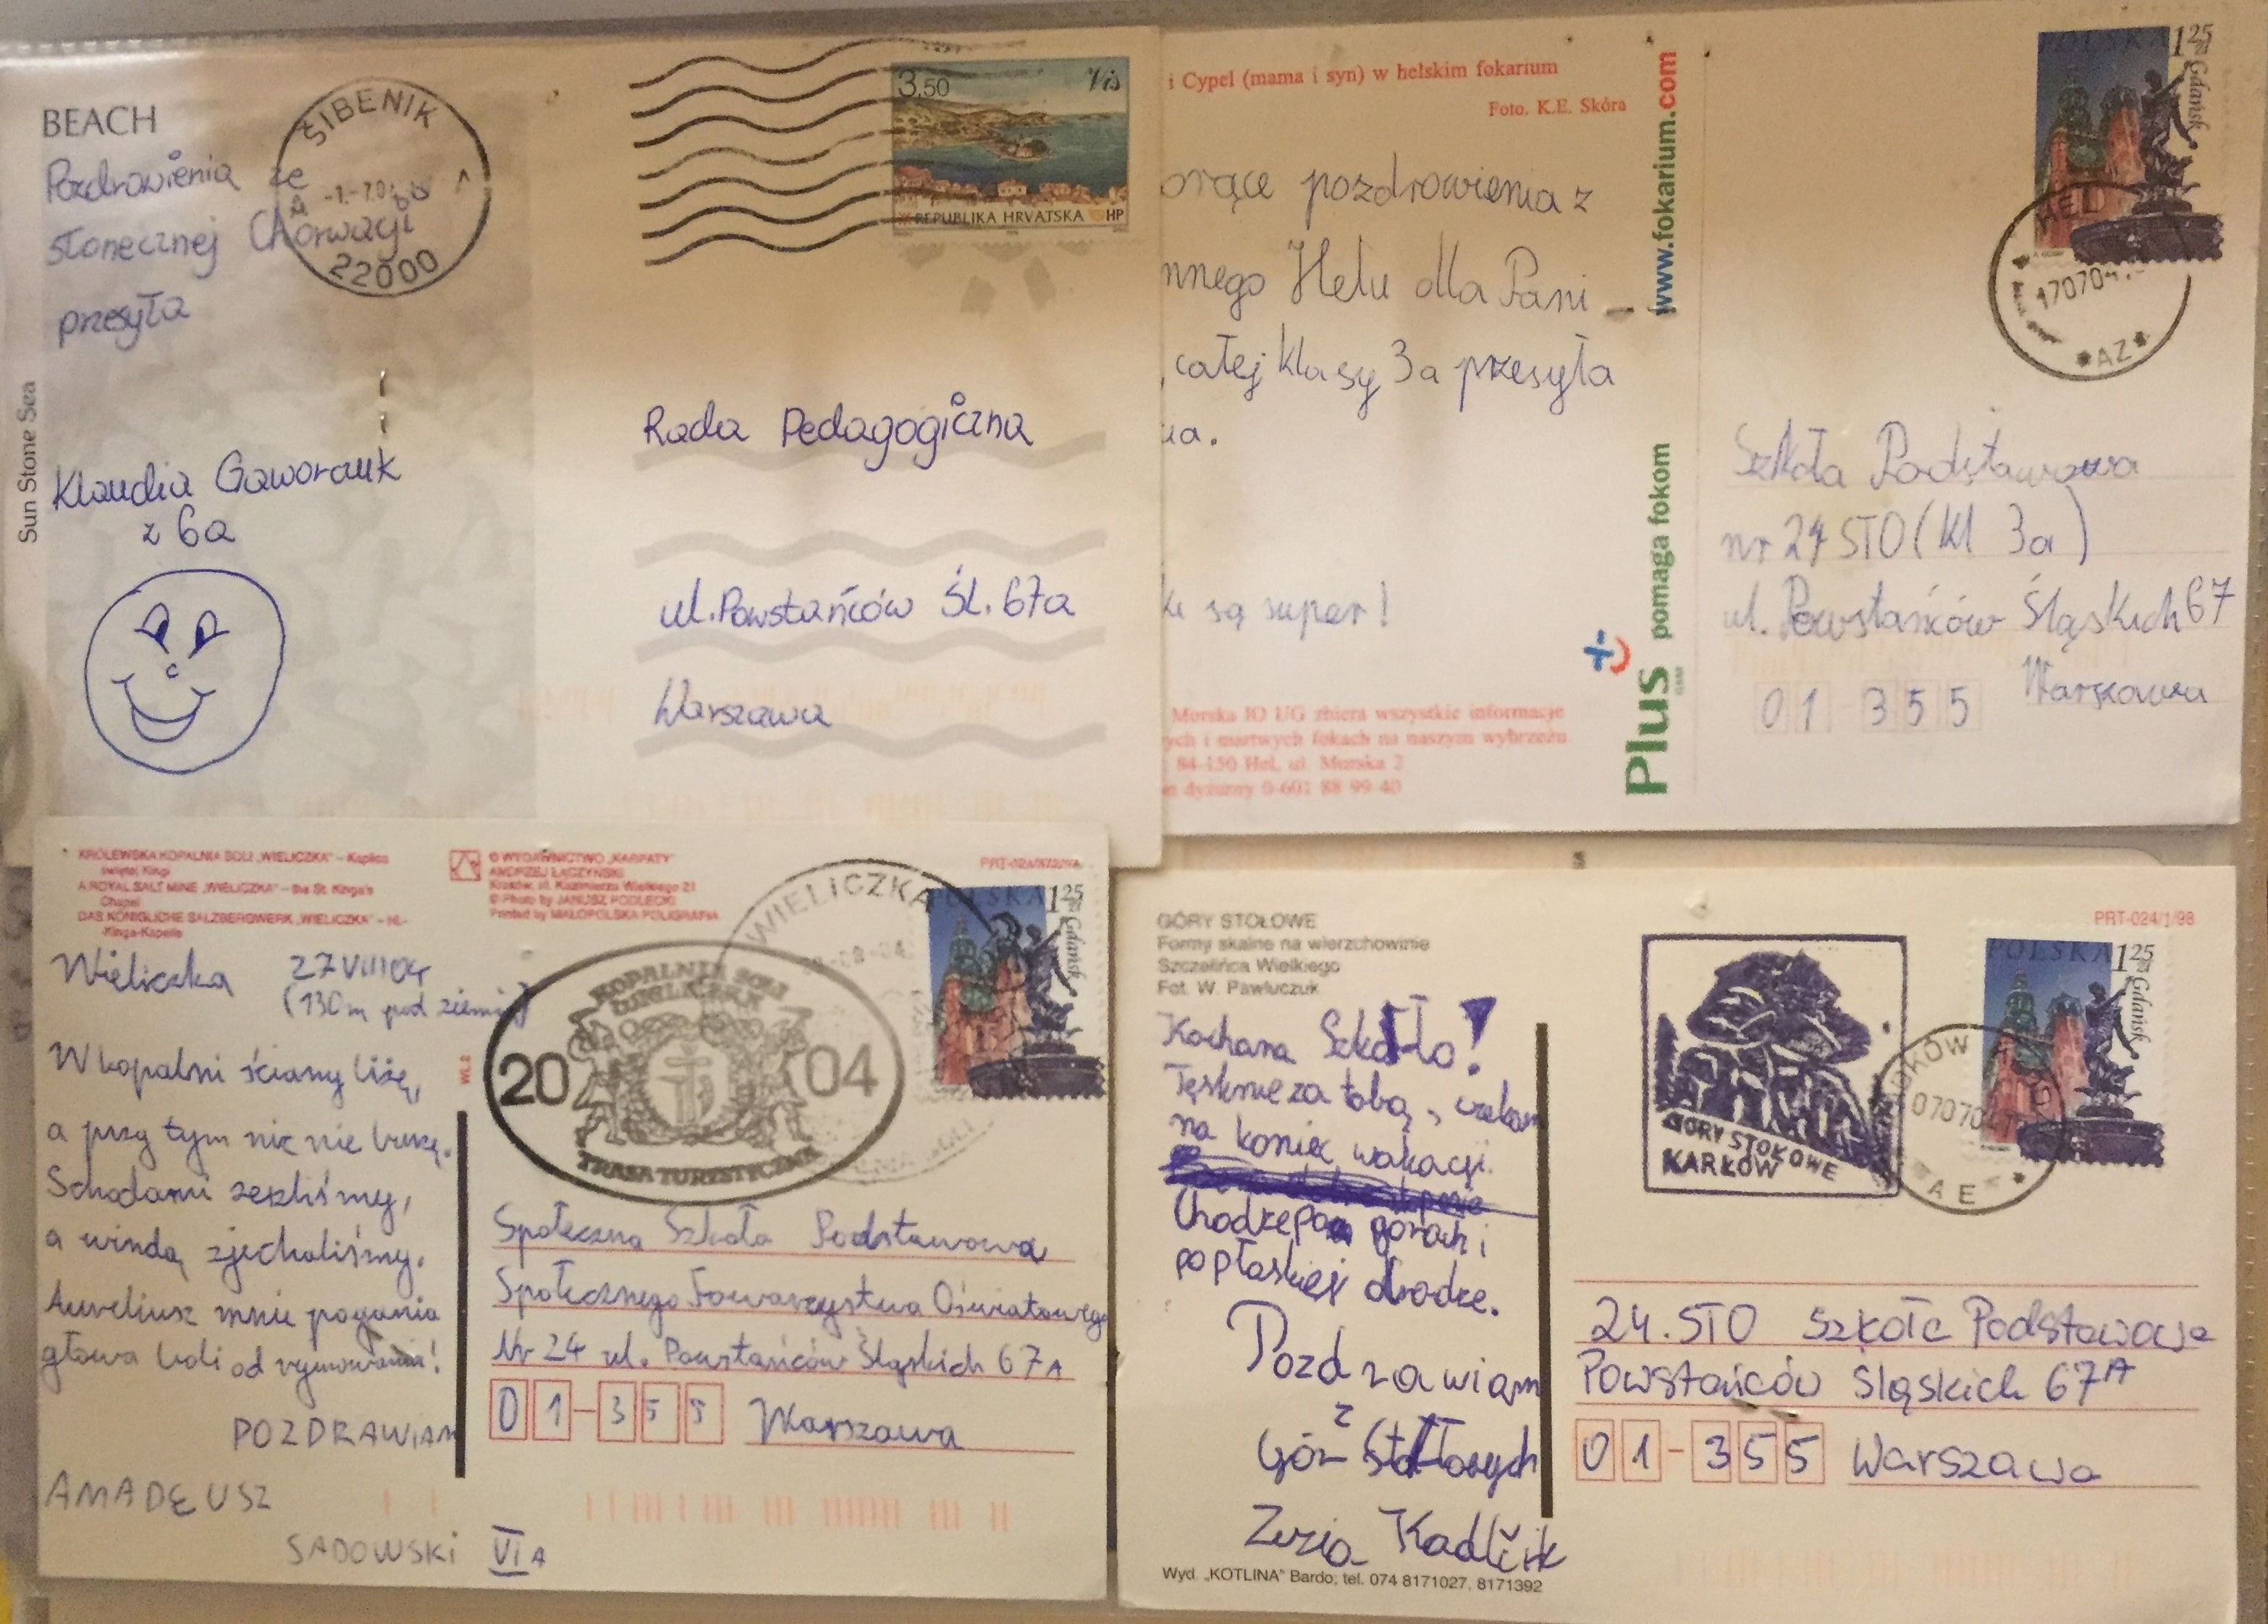 BEACH
Pozdrowienia ze
słonecznej Chorwacji
przesyła
Klaudia
z 6a
Sun Stone Sea
ŠIBENIK
22000
3,50 Vis
REPUBLIKA HRVATSKA HP
Rada Pedagogiczna
ul. Powstańców Śl. 67a
Warszawa
i Cypel (mama i syn) w helskim fokarium
Foto. K.E. Skóra
orące pozdrowienia z
nnego Helu dla Pani
całej klasy 3a przesyła
ia.
ki są super!
Morska IO UG zbiera wszystkie informacje
ych i martwych fokach na naszym wybrzeżu
84-150 Hel, ul. Morska 2
n dyżurny 0-601 88 99 40
www.fokarium.com
Plus GSM pomaga fokom
POLSKA 1 25 zł Gdańsk
HEL
170704
*AZ*
Szkoła Podstawowa
nr 24 STO (kl 3a)
ul. Powstańców Śląskich 67
Warszawa
01 355
KRÓLEWSKA KOPALNIA SOLI „WIELICZKA" – Kaplica
świętej Kingi
A ROYAL SALT MINE „WIELICZKA" – the St. Kinga's
Chapel
DAS KÖNIGLICHE SALZBERGWERK „WIELICZKA" – Hl.-
-Kinga-Kapelle
© WYDAWNICTWO „KARPATY"
ANDRZEJ ŁĄCZYŃSKI
Kraków, ul. Kazimierza Wielkiego 21
© Photo by JANUSZ PODLECKI
Printed by MAŁOPOLSKA POLIGRAFIA
WL2
Wieliczka 27 VIII 04r
(130m pod ziemią)
W kopalni ściany liżę,
a przy tym nic nie burzę.
Schodami zeszliśmy,
a windą zjechaliśmy.
Aureliusz mnie pogania
głowa boli od rymowania!
POZDRAWIAM
AMADEUSZ
SADOWSKI VI A
WIELICZKA
KOPALNIA SOLI
WIELICZKA
20 04
TRASA TURYSTYCZNA
POLSKA 1 25 zł Gdańsk
Społeczna Szkoła Podstawowa
Społecznego Towarzystwa Oświatowego
Nr 24 ul. Powstańców Śląskich 67A
01-355 Warszawa
GÓRY STOŁOWE
Formy skalne na wierzchowinie
Szczelińca Wielkiego
Fot. W. Pawłuczuk
Kochana Szkoło!
Tęsknię za tobą, czekam
na koniec wakacji.
Chodzę po górach i
po płaskiej drodze.
Pozdrawiam
z
Gór Stołowych
Zuzia
Wyd. „KOTLINA" Bardo; tel. 074 8171027, 8171392
PRT-024/1/98
GÓRY STOŁOWE
KARŁÓW
070704
A E *
POLSKA 1 25 zł Gdańsk
24. STO Szkoła Podstawowa
Powstańców Śląskich 67A
01-355 Warszawa